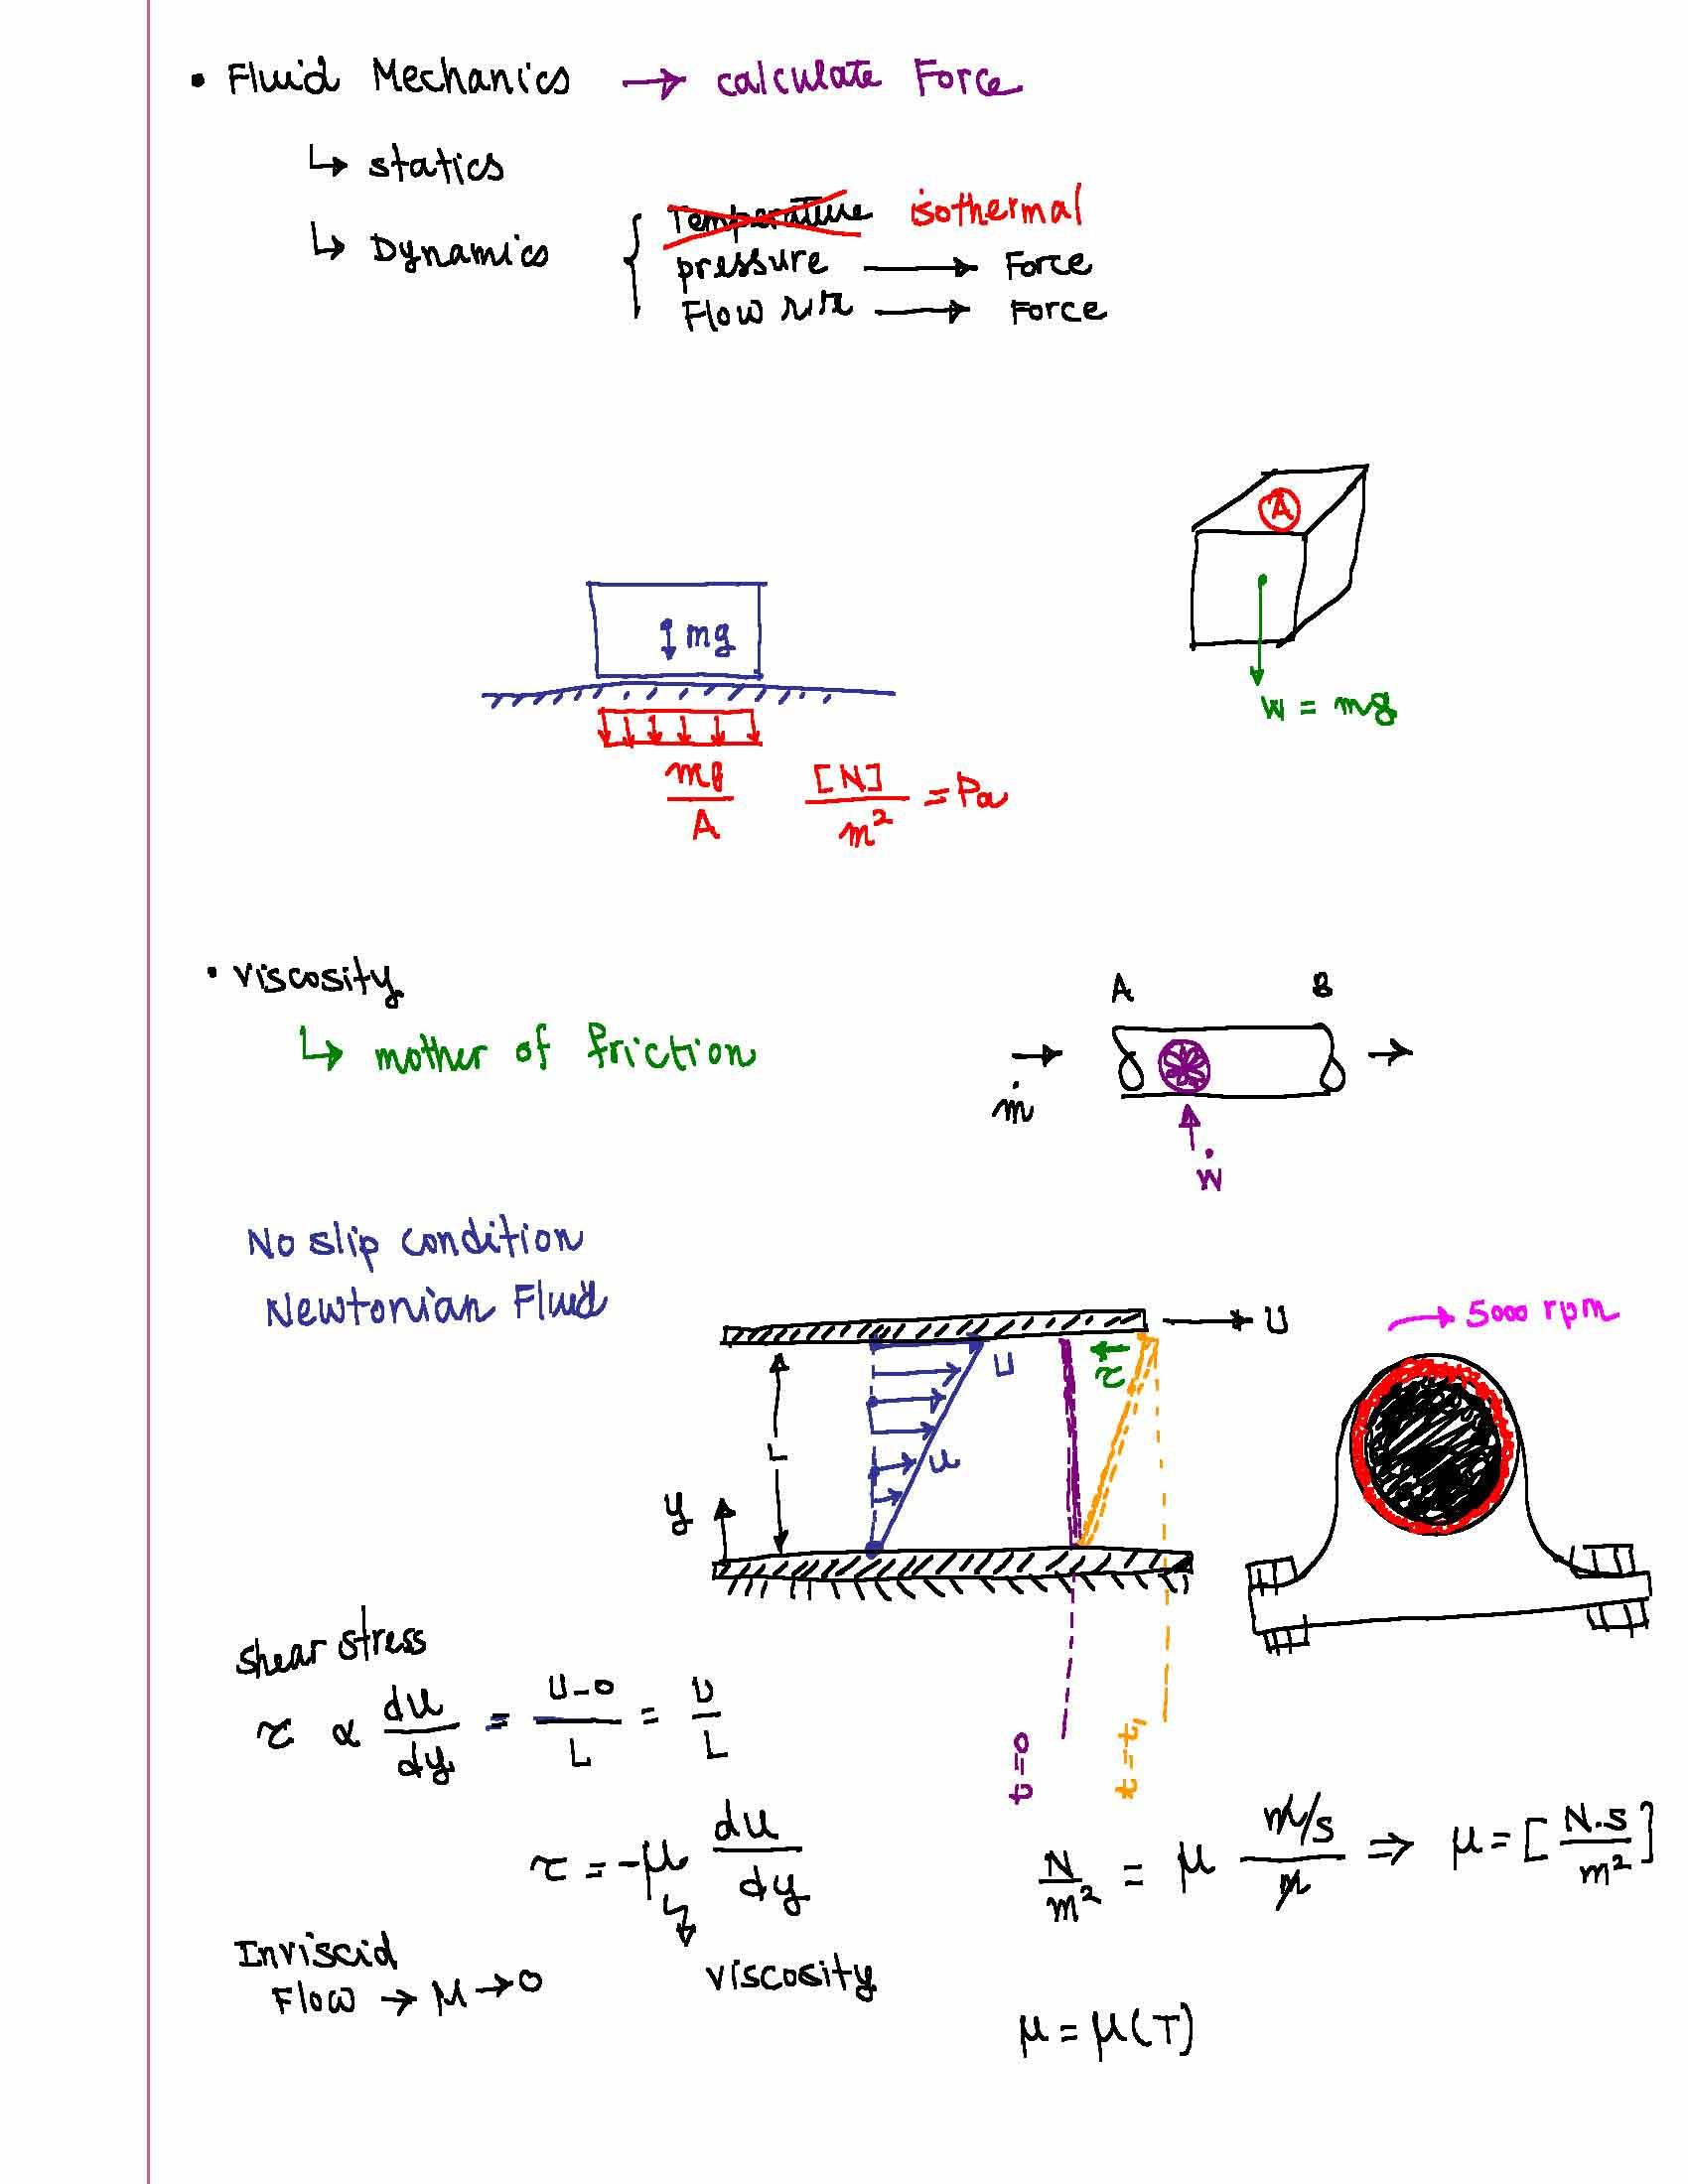 • Fluid Mechanics → calculate Force
↳ statics
↳ Dynamics
Temperature isothermal
pressure → Force
Flow → Force
A
mg
W = mg
mg/A [N]/m² = Pa
• viscosity
↳ mother of friction
A B
ṁ
Ẇ
No slip condition
Newtonian Fluid
U
5000 rpm
U
τ
L
u
y
shear stress
τ ∝ du/dy = U-0/L = U/L
t=0
t=t₁
τ = -μ du/dy
N/m² = μ m/s/m ⇒ μ = [N·s/m²]
viscosity
Inviscid
Flow → μ → 0
μ = μ(T)